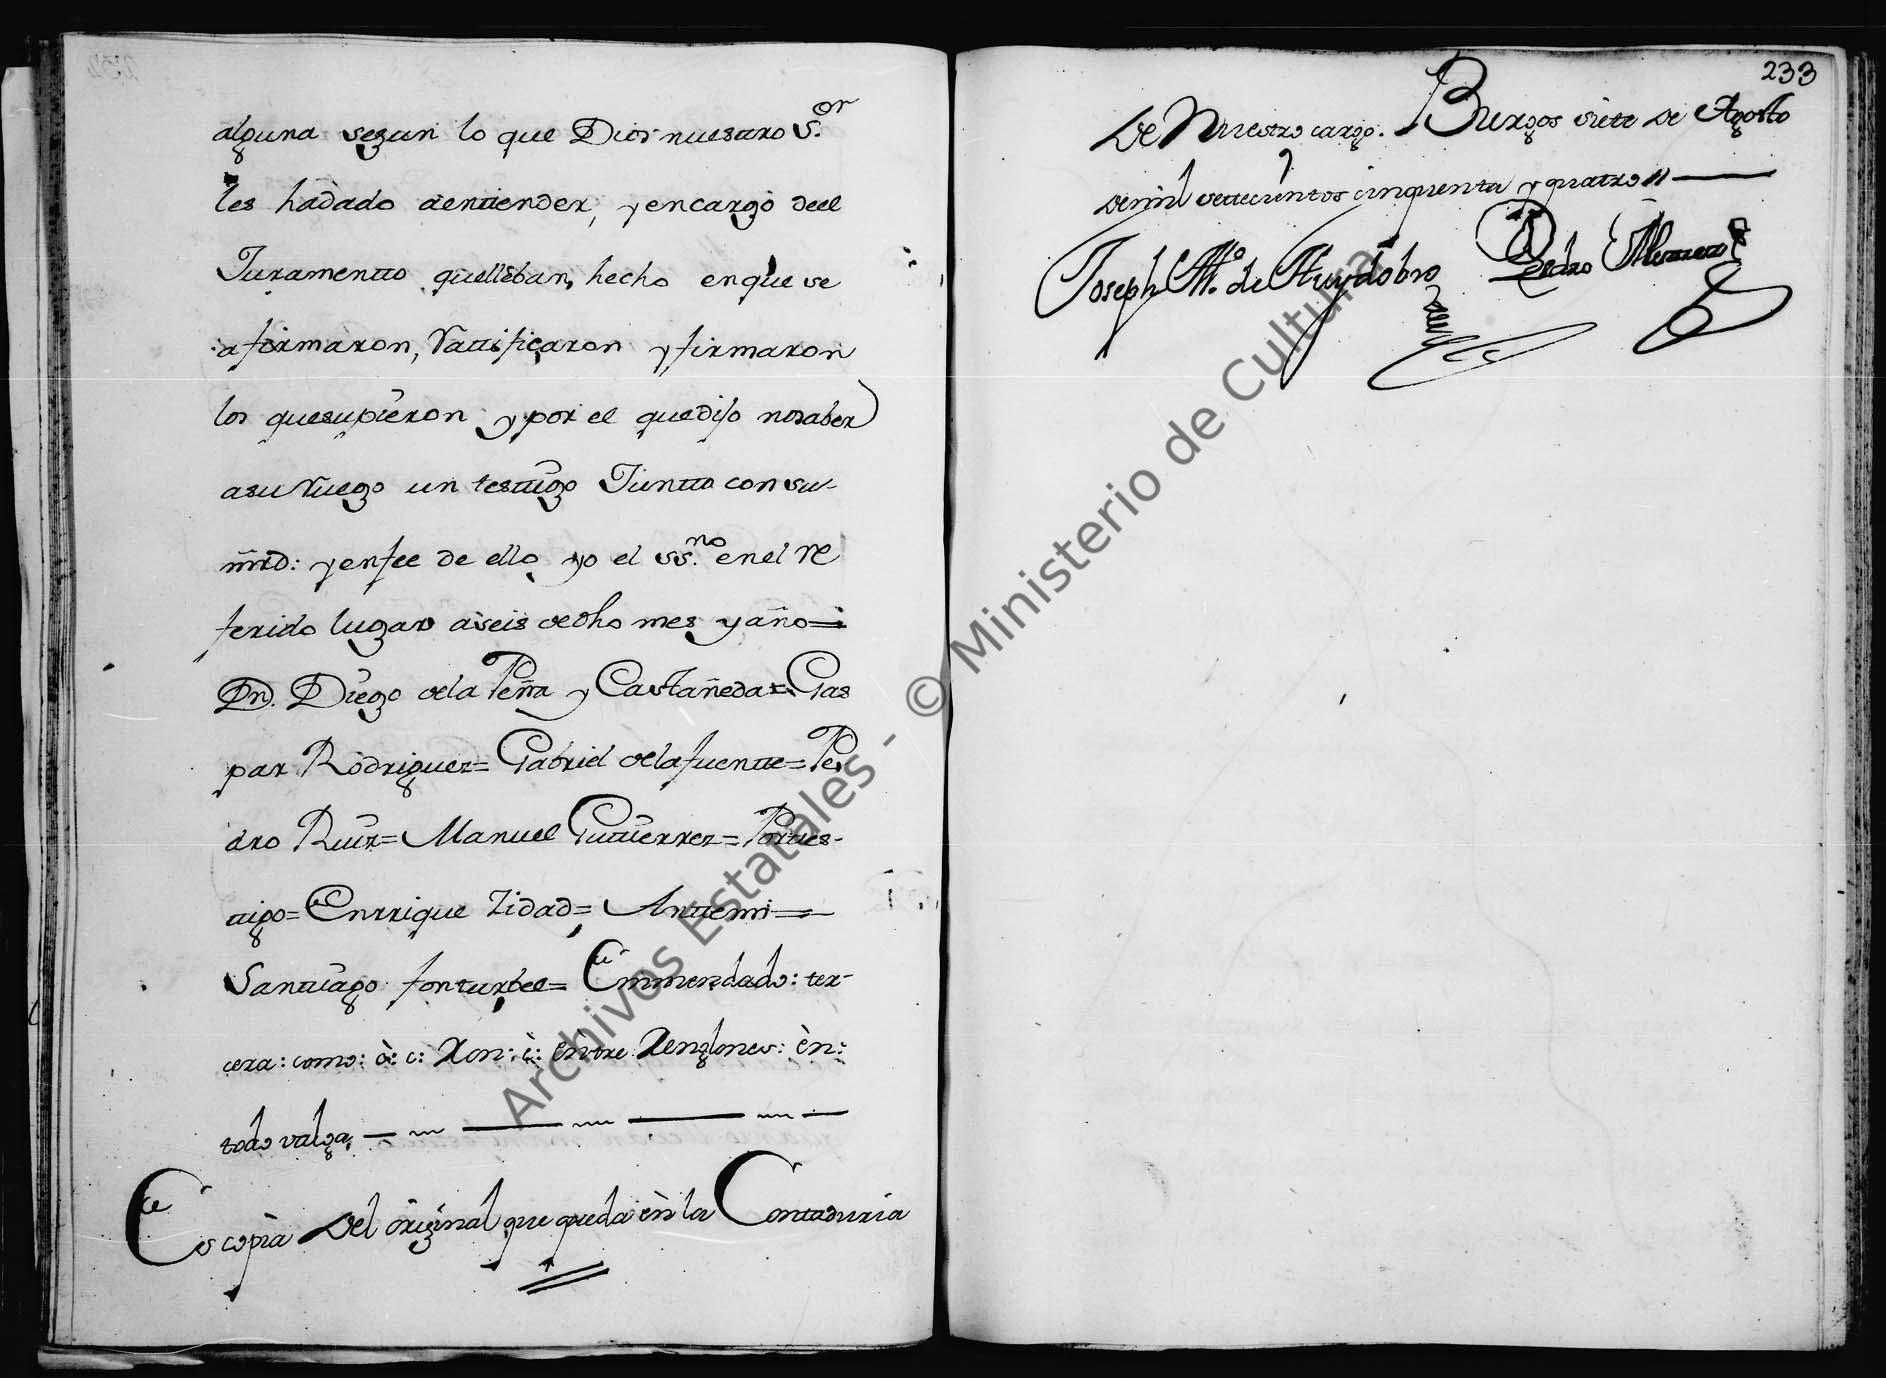 alguna segun lo que Dios nuestro S.or
les hadado aentiender, y encargo deel
Juramentto quelleban hecho enque se
afirmaron, Rattificaron y firmaron
los quesupieron y por el quedijo nosaber
asu Ruego un testtigo Juntto con su
mrd: y enfee de ello yo el ss.no enel re
ferido lugar a seis de dho mes y año=
Dn. Diego dela Peña y Casttañeda= Gas
par Rodriguez= Gabriel dela fuentte= Pe
dro Ruiz= Manuel Guttierrez= Porttes-
ttigo= Enrrique Zidad= Anttemi=
Santtiago fonturbel= Emmendado: ter-
cera: como: o: c: Xon: i: entre Renglones: en:
todo valga,
Es copia Del original que queda en la Conttaduria
233
De Nuestro cargo. Burgos siete de Agosto
demil settecientos cinquenta y quatro //
Joseph M.o de Huydobro Pedro
Archivos Estatales - © Ministerio de Cultura